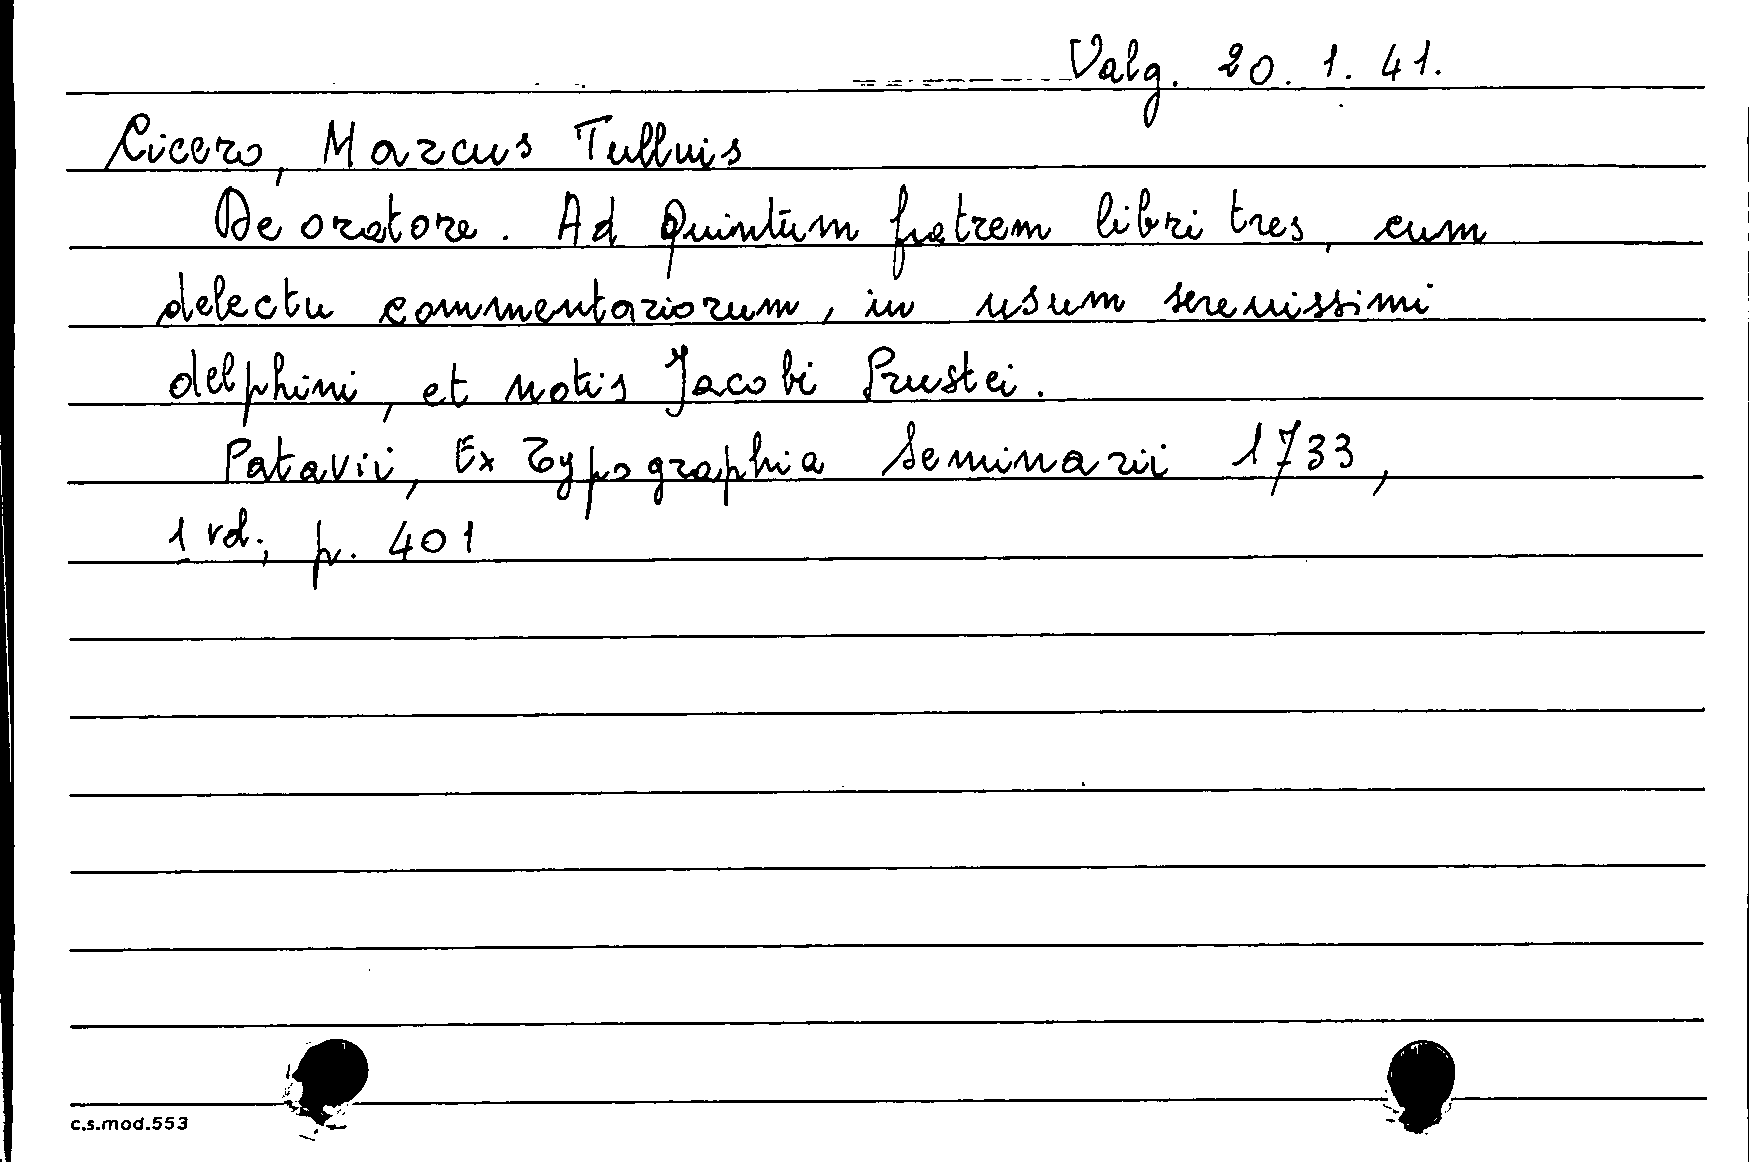 Valg. 20. 1. 41.
Cicero, Marcus Tullius
De oratore. Ad Quintum fratrem libri tres, cum
delectu commentariorum, in usum serenissimi
delphini, et notis Jacobi Prustei.
Patavii, Ex Typographia Seminarii 1733,
1 vol., p. 401
c.s.mod.553